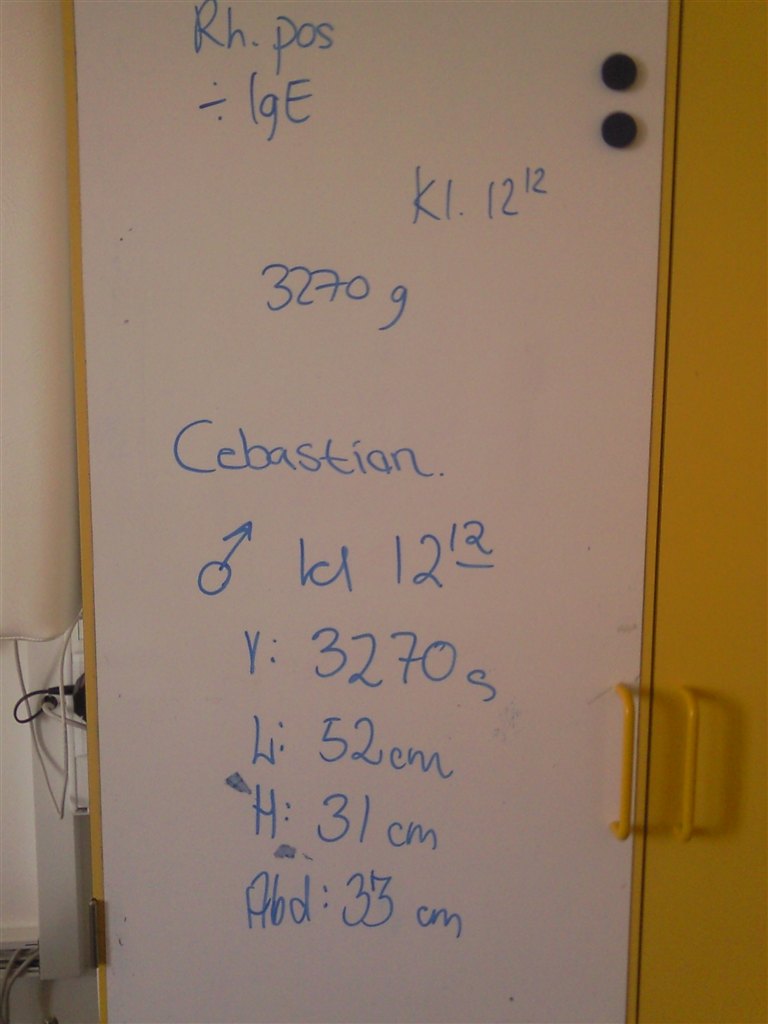 Rh. pos
÷ IgE
Kl. 12¹²
3270 g
Cebastian.
♂ kl 12¹²
V: 3270 g
L: 52 cm
H: 31 cm
Abd: 33 cm